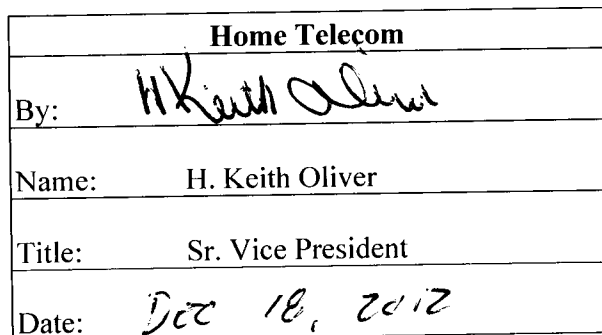 Home Telecom
By: H Keith Oliver
Name: H. Keith Oliver
Title: Sr. Vice President
Date: Dec 18, 2012